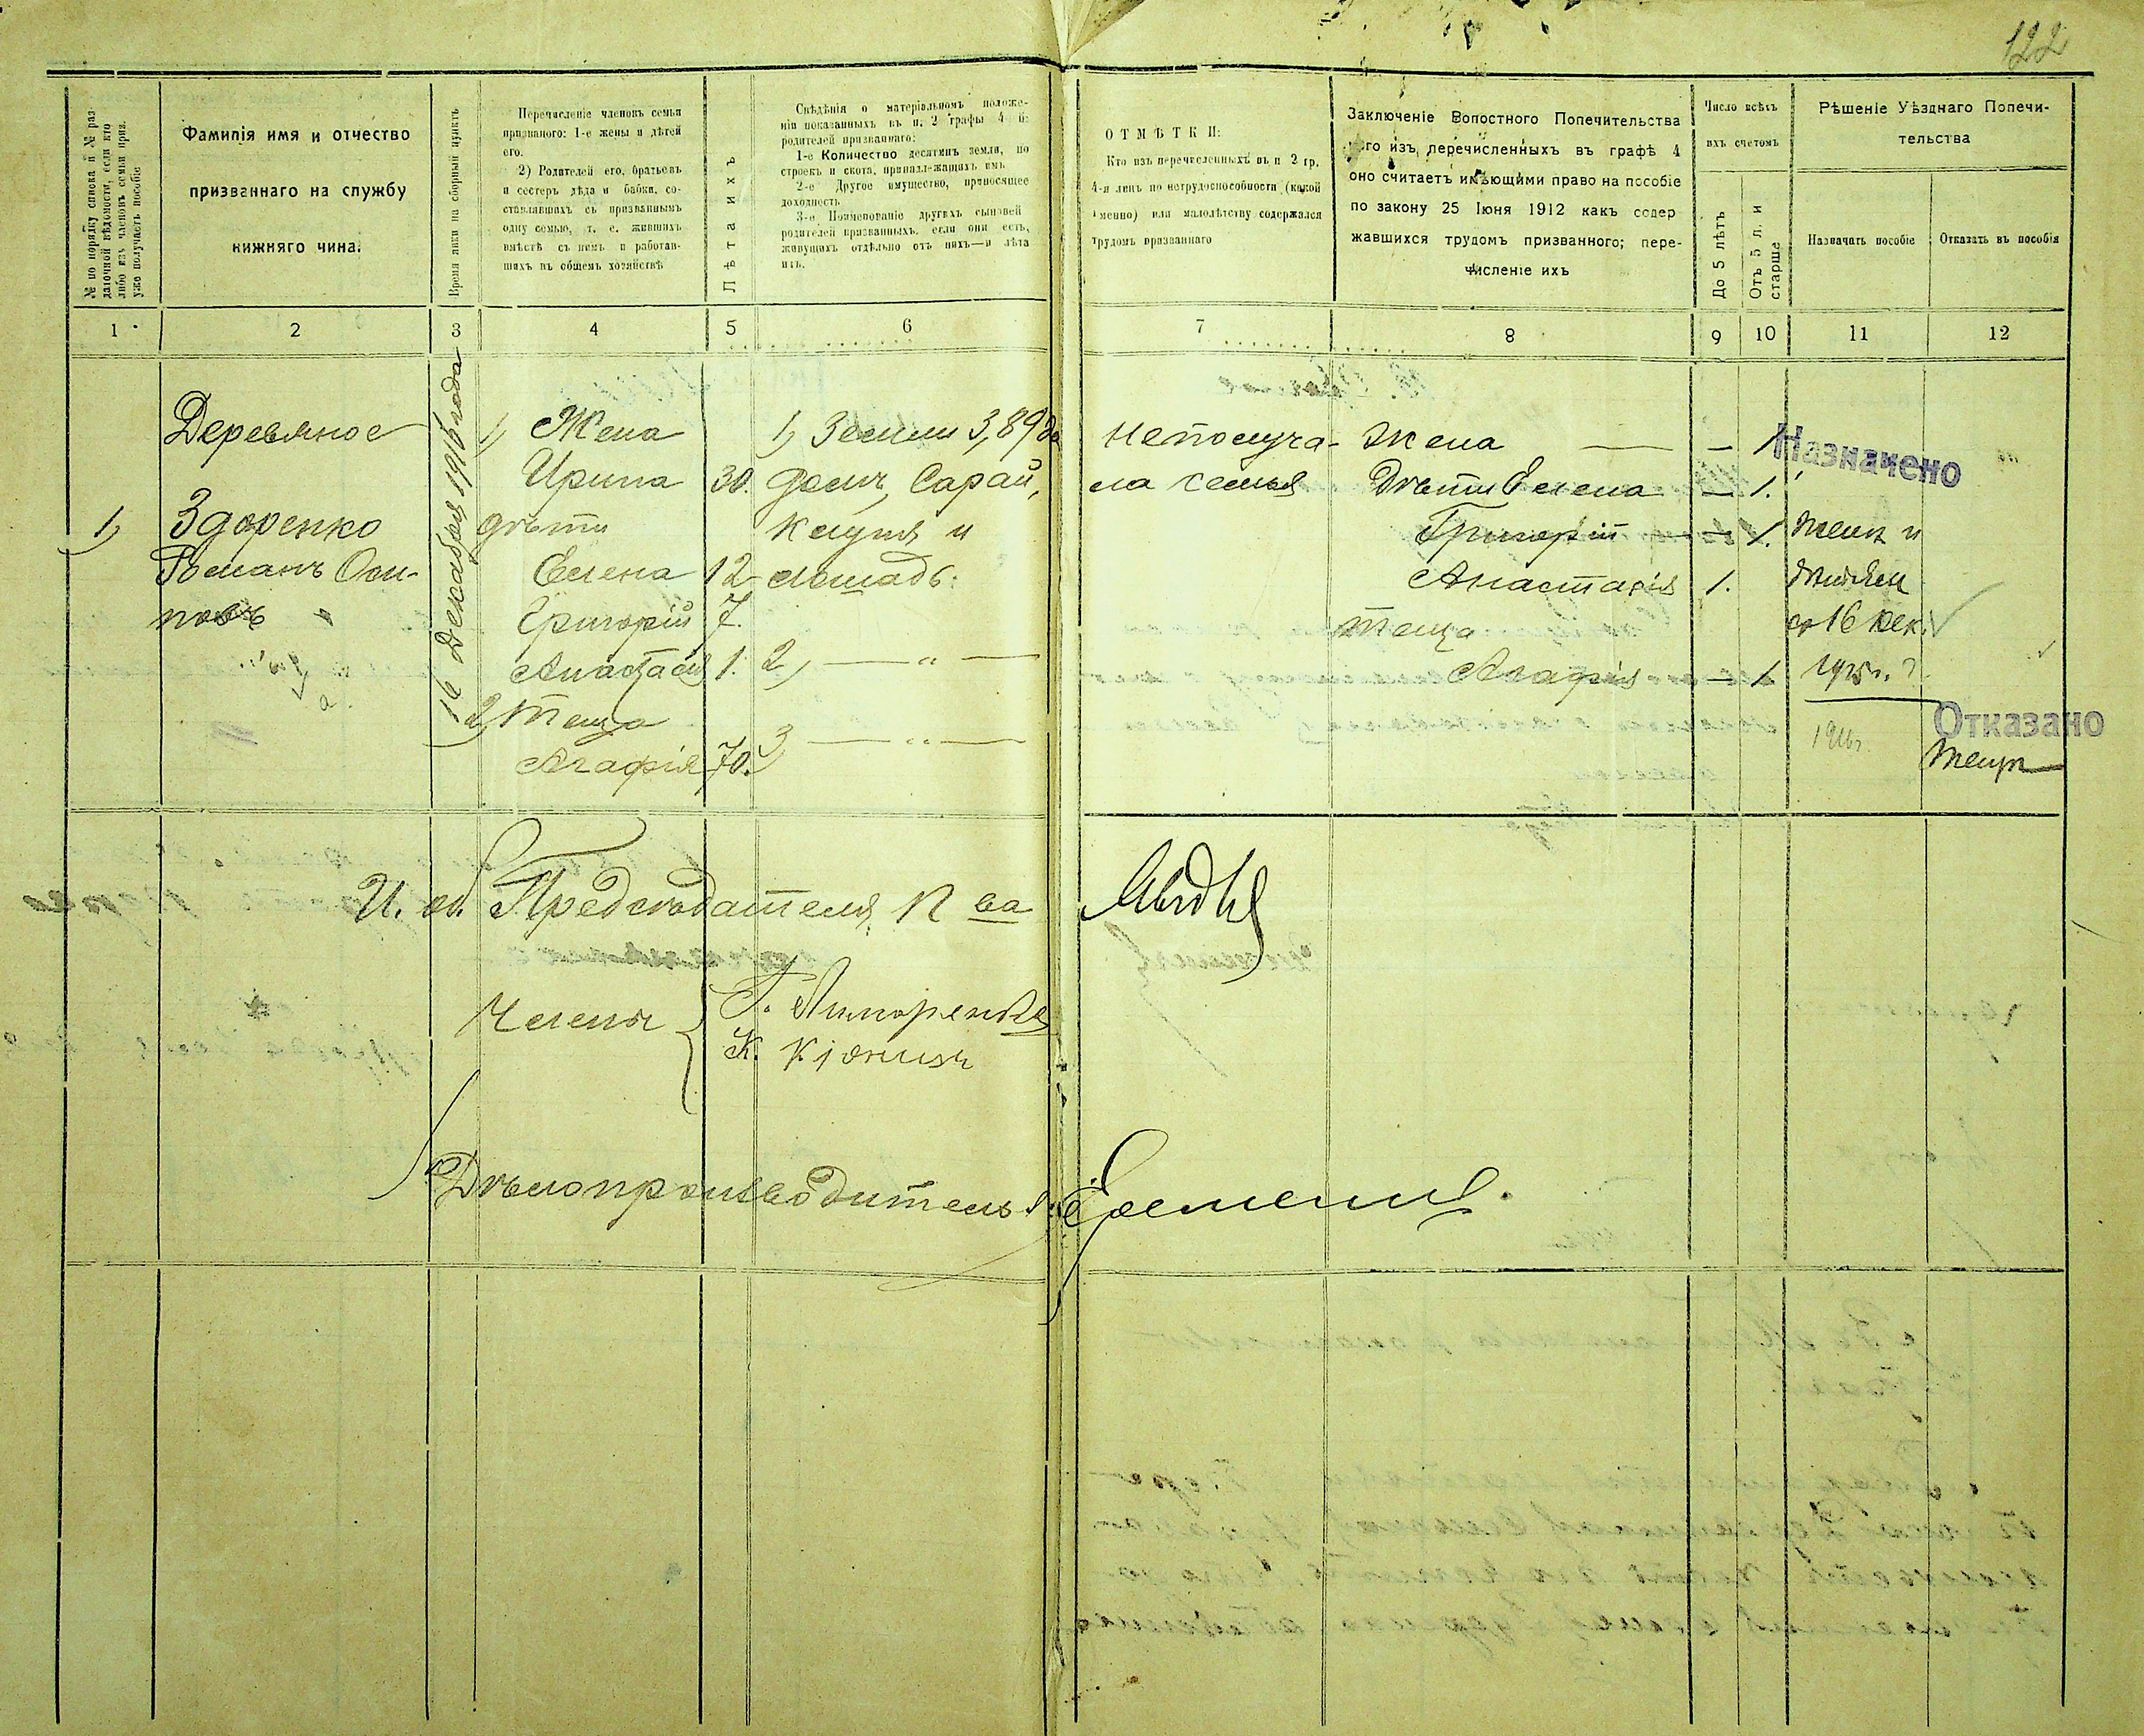 122
№ по порядку списка и № раз
даточной вѣдомости, если кто
либо изъ членовъ семьи приз.
уже получаетъ пособіе
Фамилія имя и отчество
призваннаго на службу
нижняго чина.
Время явки на сборный пунктъ
Перечисленіе членовъ семьи
призваного: 1-е жены и дѣтей
его.
2) Родителей его, братьевъ
и сестеръ дѣда и бабки, со-
ставлявшихъ съ призваннымъ
одну семью, т. е. жившихъ
вмѣстѣ съ нимъ и работав-
шихъ въ общемъ хозяйствѣ
Лѣта ихъ
Свѣдѣнія о матеріальномъ положе-
ніи показанныхъ въ п. 2 графы 4 и:
родителей призваннаго:
1-е Количество десятинъ земли, по
строекъ и скота, принадлежащихъ имъ
2-е Другое имущество, приносящее
доходность
3-е Поименованіе другихъ сыновей
родителей призванныхъ, если они есть,
живущихъ отдѣльно отъ нихъ—и лѣта
ихъ.
ОТМѢТКИ:
Кто изъ перечисленныхъ въ п 2 гр.
4-я лицъ по нетрудоспособности (какой
именно) или малолѣтству содержался
трудомъ призваннаго
Заключеніе Волостного Попечительства
кого изъ перечисленныхъ въ графѣ 4
оно считаетъ имѣющими право на пособіе
по закону 25 Іюня 1912 какъ содер
жавшихся трудомъ призванного; пере-
численіе ихъ
Число всѣхъ
ихъ счетомъ
До 5 лѣтъ
Отъ 5 л. и
старше
Рѣшеніе Уѣзднаго Попечи-
тельства
Назначать пособіе
Отказать въ пособія
1 2 3 4 5 6 7 8 9 10 11 12
Деревяное
1) Здоренко
Романъ Оси-
повъ
16 Декабря 1916 года
1) Жена
Ирина 30.
дѣти
Елена 12
Григорій 7.
Анастасія 1.
2) теща
Агафія 70.
1) Земли 3,89 де
домъ, Сарай,
Клуня и
лошадь.
2) — " —
3) — " —
Неполуча-
ла семья
Жена — — 1
Дѣти Елена — 1.
Григорій — 1.
Анастасія 1.
теща
Агафія — 1
Назначено
жен и
дѣтям
с 16 дек.
1915 г.
1916г.
Отказано
тещѣ
И. об. Предсѣдателя П ва
Члены { Г.
К.
Дѣлопроизводитель